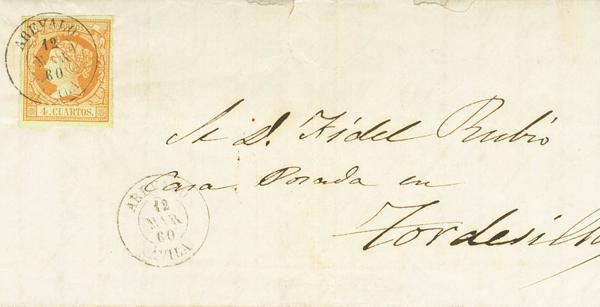 AREVALO
12
MAR
60
AVILA
4 CUARTOS.
Sr. D. Fidel Rubio
Casa Posada en
Tordesill
ARE
12
MAR
60
AVILA